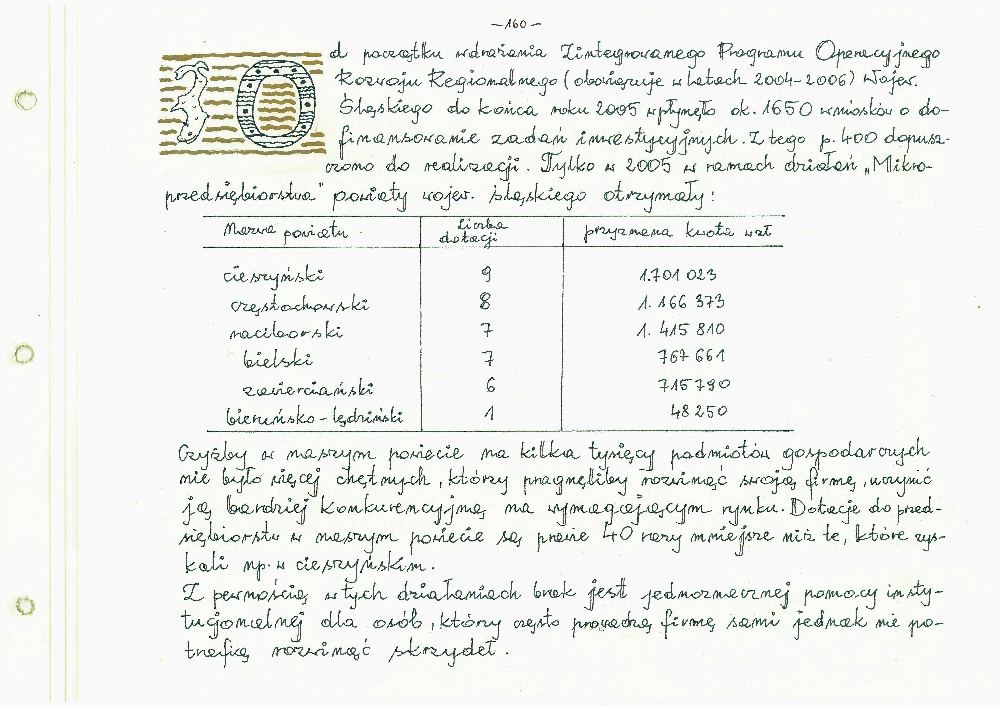 – 160 –
Od początku wdrażania Zintegrowanego Programu Operacyjnego
Rozwoju Regionalnego (obowiązuje w latach 2004-2006) Wojew.
Śląskiego do końca roku 2005 wpłynęło ok. 1650 wniosków o do-
finansowanie zadań inwestycyjnych. Z tego p. 400 dopusz-
czono do realizacji. Tylko w 2005 w ramach działań „Mikro-
przedsiębiorstwa" powiaty wojew. śląskiego otrzymały:
Nazwa powiatu Liczba dotacji przyznana kwota w zł
cieszyński 9 1.701 023
częstochowski 8 1.166 373
raciborski 7 1.415 810
bielski 7 767 661
zawierciański 6 715 790
bieruńsko-lędziński 1 48 250
Czyżby w naszym powiecie na kilka tysięcy podmiotów gospodarczych
nie było więcej chętnych, którzy pragnęliby rozwinąć swoją firmę, uczynić
ją bardziej konkurencyjną na wymagającym rynku. Dotacje do przed-
siębiorstw w naszym powiecie są prawie 40 razy mniejsze niż te, które zys-
kali np. w cieszyńskim.
Z pewnością w tych działaniach brak jest jednoznacznej pomocy insty-
tucjonalnej dla osób, którzy często prowadzą firmę sami jednak nie po-
trafią rozwinąć skrzydeł.